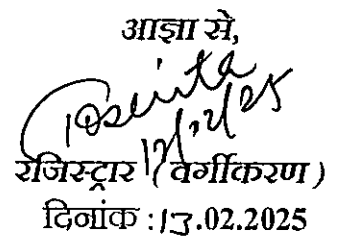 आज्ञा से,
17/2/25
रजिस्ट्रार (वर्गीकरण)
दिनांक :17.02.2025